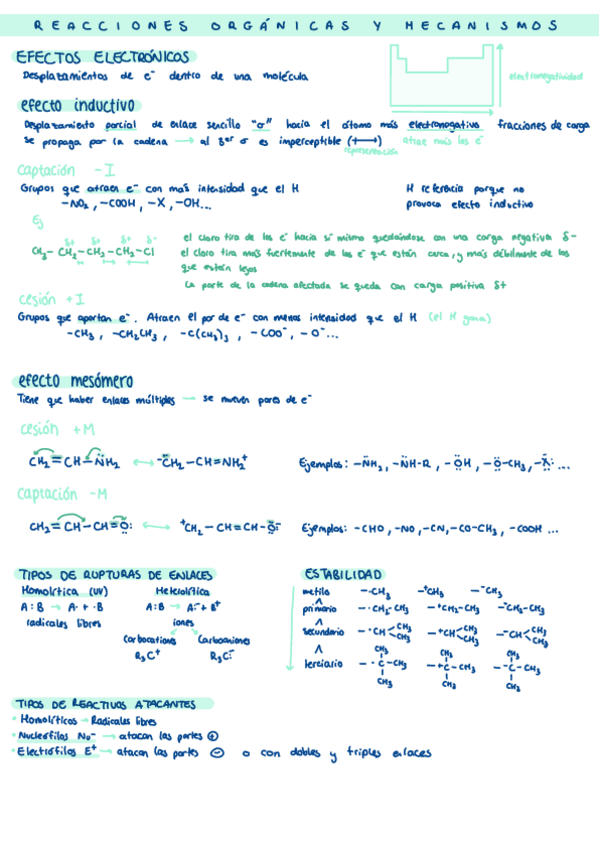 REACCIONES ORGÁNICAS Y MECANISMOS
EFECTOS ELECTRÓNICOS
Desplazamientos de e⁻ dentro de una molécula
electronegatividad
efecto inductivo
Desplazamiento parcial de enlace sencillo "σ" hacia el átomo más electronegativo fracciones de carga
se propaga por la cadena → al 3er σ es imperceptible (⟼) atrae más los e⁻
representación
captación -I
Grupos que atraen e⁻ con más intensidad que el H
H referencia porque no
-NO₂, -COOH, -X, -OH...
provoca efecto inductivo
Ej
δ+ δ+ δ+ δ-
CH₃-CH₂-CH₂-CH₂-Cl
el cloro tira de los e⁻ hacia sí mismo quedándose con una carga negativa δ-
el cloro tira más fuertemente de los e⁻ que están cerca, y más débilmente de los
que están lejos
La parte de la cadena afectada se queda con carga positiva δ+
cesión +I
Grupos que aportan e⁻. Atraen el par de e⁻ con menos intensidad que el H (el H gana)
-CH₃, -CH₂CH₃, -C(CH₃)₃, -COO⁻, -O⁻...
efecto mesómero
Tiene que haber enlaces múltiples → se mueven pares de e⁻
cesión +M
CH₂=CH-N̈H₂ ↔ ⁻C̈H₂-CH=NH₂⁺
Ejemplos: -N̈H₂, -N̈H-R, -ÖH, -Ö-CH₃, -Ẍ: ...
captación -M
CH₂=CH-CH=Ö: ↔ ⁺CH₂-CH=CH-Ö:⁻
Ejemplos: -CHO, -NO, -CN, -CO-CH₃, -COOH ...
TIPOS DE RUPTURAS DE ENLACES
Homolítica (UV) Heterolítica
A:B → A· + ·B A:B → A:⁻ + B⁺
radicales libres iones
Carbocationes Carbaniones
R₃C⁺ R₃C:⁻
ESTABILIDAD
metilo -·CH₃ -⁺CH₃ -⁻CH₃
^
primario -·CH₂-CH₃ -⁺CH₂-CH₃ -⁻CH₂-CH₃
^
secundario -·CH<CH₃ CH₃ -⁺CH<CH₃ CH₃ -⁻CH<CH₃ CH₃
^
CH₃ CH₃ CH₃
terciario -·C-CH₃ -⁺C-CH₃ -⁻C-CH₃
CH₃ CH₃ CH₃
TIPOS DE REACTIVOS ATACANTES
· Homolíticos → Radicales libres
· Nucleófilos Nu⁻ → atacan las partes ⊕
· Electrófilos E⁺ → atacan las partes ⊖ o con dobles y triples enlaces